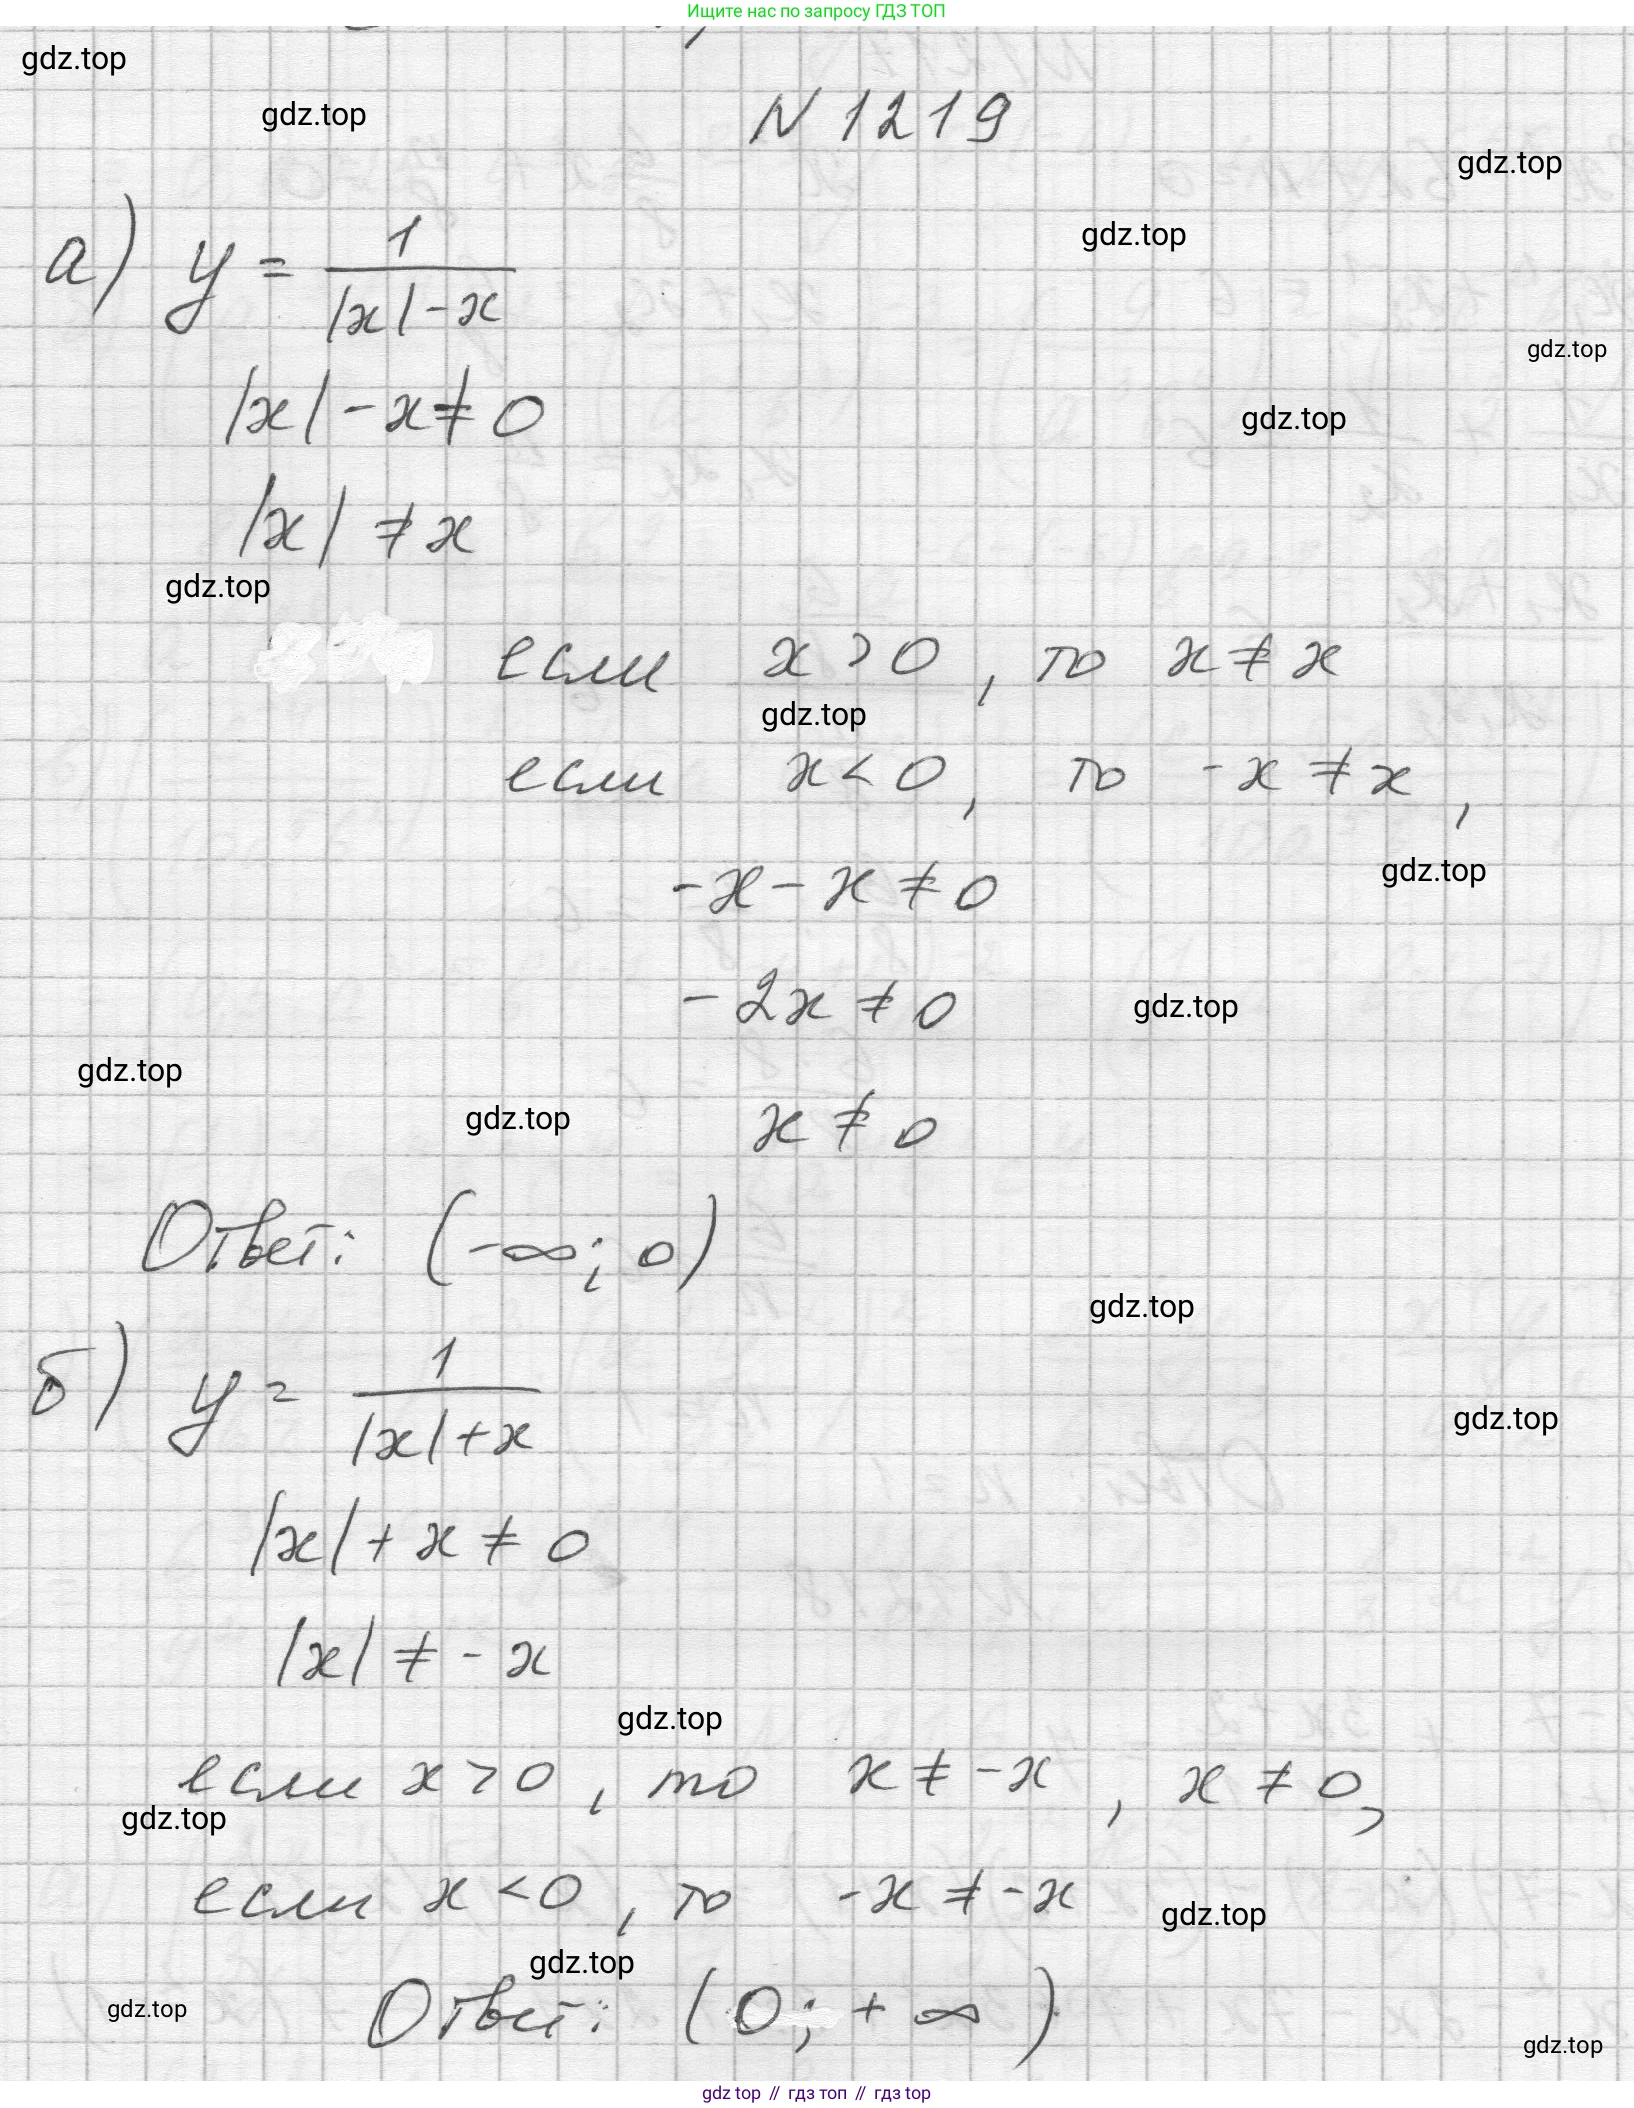 Ищите нас по запросу ГДЗ ТОП
gdz.top
gdz.top
N 1219
gdz.top
gdz.top
а) y = 1/(|x| - x)
gdz.top
|x| - x ≠ 0
gdz.top
|x| ≠ x
gdz.top
если x > 0, то x ≠ x
gdz.top
если x < 0, то -x ≠ x,
gdz.top
-x - x ≠ 0
-2x ≠ 0
gdz.top
gdz.top
gdz.top
x ≠ 0
Ответ: (-∞; 0)
gdz.top
б) y = 1/(|x| + x)
gdz.top
|x| + x ≠ 0
|x| ≠ -x
gdz.top
если x > 0, то x ≠ -x, x ≠ 0,
gdz.top
если x < 0, то -x ≠ -x
gdz.top
gdz.top
gdz.top
Ответ: (0; +∞)
gdz.top
gdz top // гдз топ // гдз top